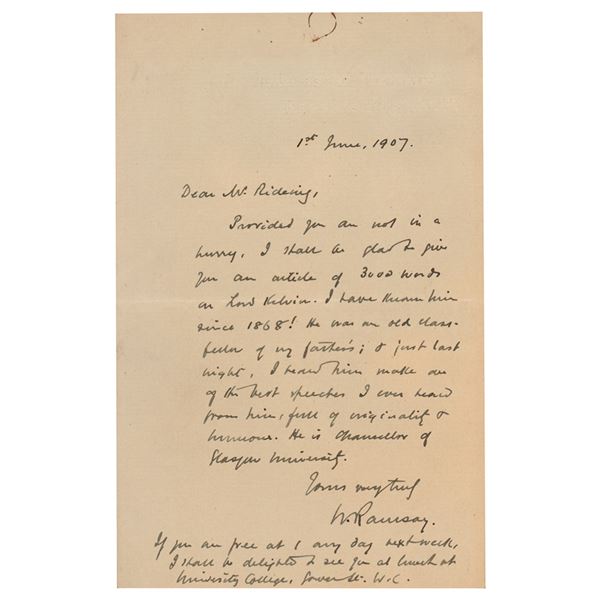 1st June, 1907.
Dear Mr Rideing,
Provided you are not in a
hurry, I shall be glad to give
you an article of 3000 words
on Lord Kelvin. I have known him
since 1868! He was an old class-
fellow of my father's; & just last
night, I heard him make one
of the best speeches I ever heard
from him, full of originality &
humour. He is Chancellor of
Glasgow University.
Yours very truly
W. Ramsay.
If you are free at 1 any day next week,
I shall be delighted to see you at lunch at
University College, Gower St. W.C.